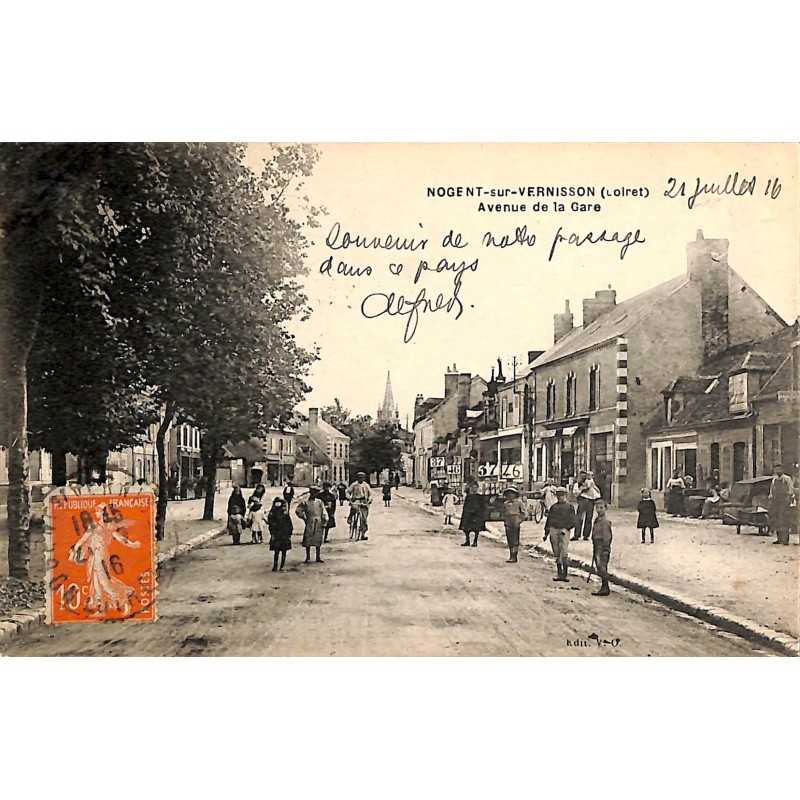 NOGENT-sur-VERNISSON (Loiret)
Avenue de la Gare
21 Juillet 16
Souvenir de notre passage
dans ce pays
Alfred.
37 76
REPUBLIQUE FRANÇAISE
10c
POSTES
16
Edit. V.O.